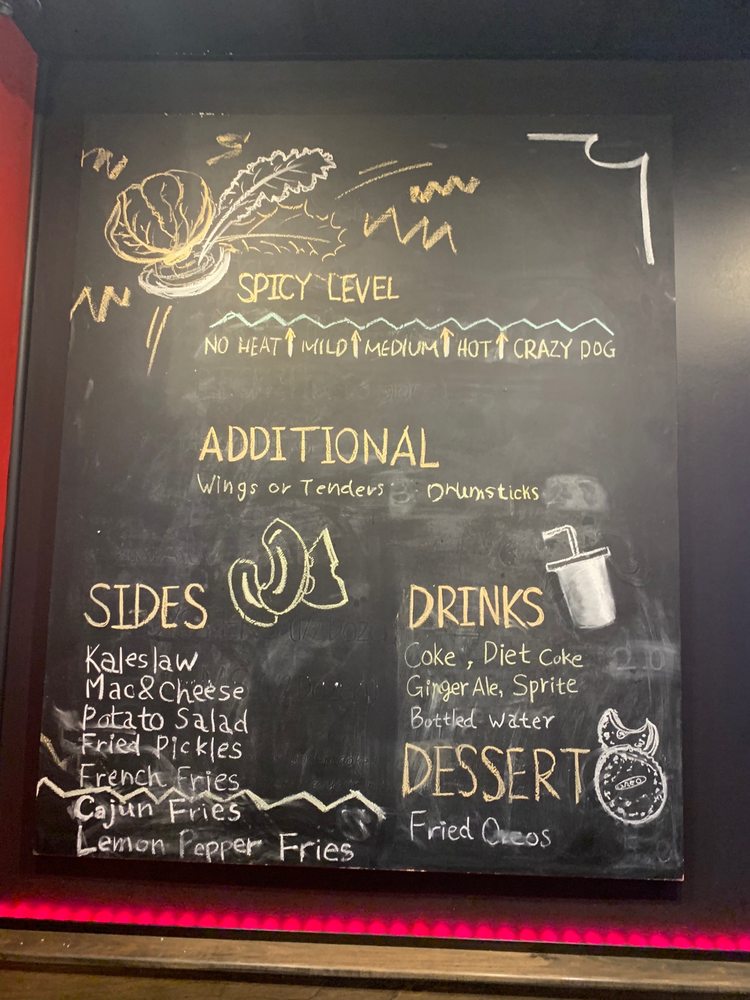 SPICY LEVEL
NO HEAT↑MILD↑MEDIUM↑HOT↑CRAZY DOG
ADDITIONAL
Wings or Tenders Drumsticks
SIDES
Kaleslaw
Mac&Cheese
Potato Salad
Fried Pickles
French Fries
Cajun Fries
Lemon Pepper Fries
DRINKS
Coke, Diet Coke
Ginger Ale, Sprite
Bottled Water
DESSERT
OREO
Fried Oreos